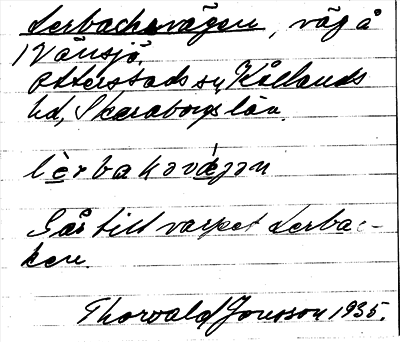 Lerbackavägen, väg å
Vänsjö,
Otterstads sn, Kållands
hd, Skaraborgs län.
lè̱rbakavä́gən
Går till varpet Lerbac-
ken.
Thorvald Jonsson 1935.